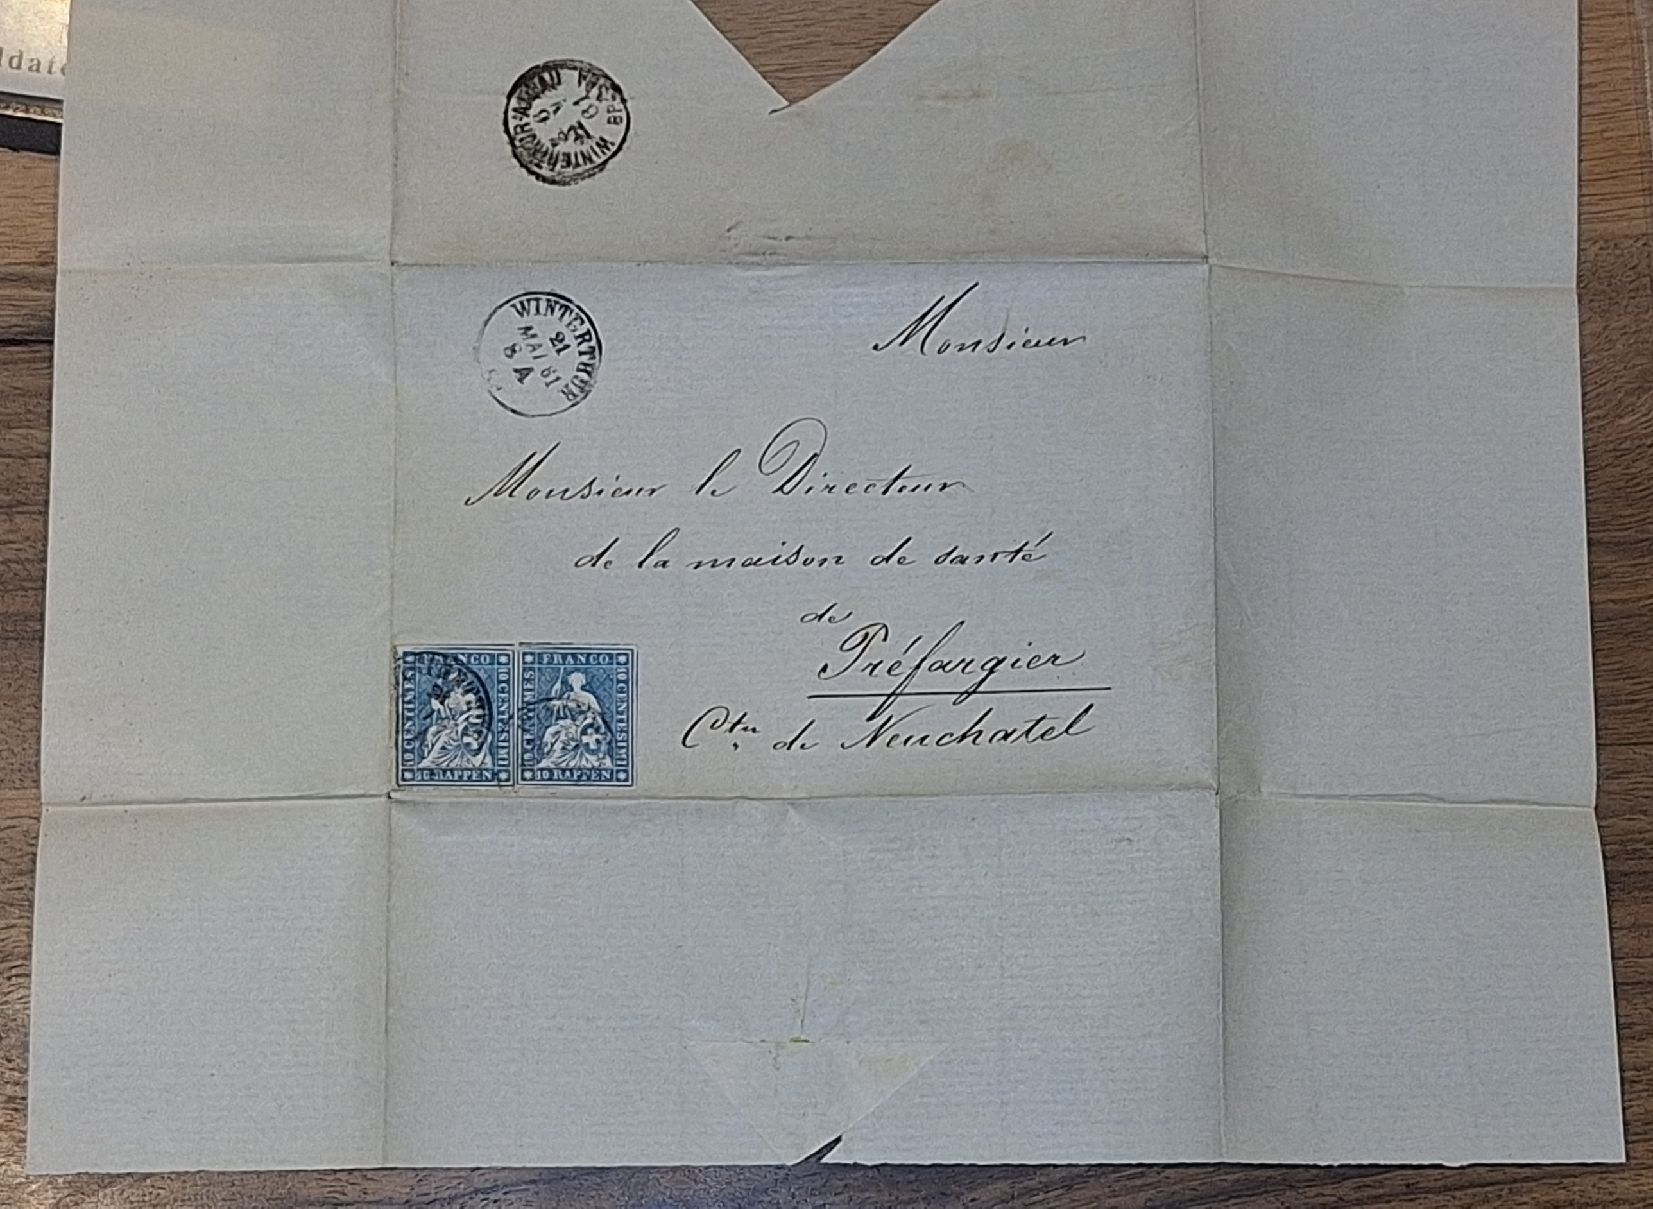 WINTERTHUR
21
MAI 61
8 A
Monsieur
Monsieur le Directeur
de la maison de santé
de
Préfargier
Ctn de Neuchatel
FRANCO
10 CENTIMES
10 CENTESIMI
10 RAPPEN
FRANCO
10 CENTIMES
10 CENTESIMI
10 RAPPEN